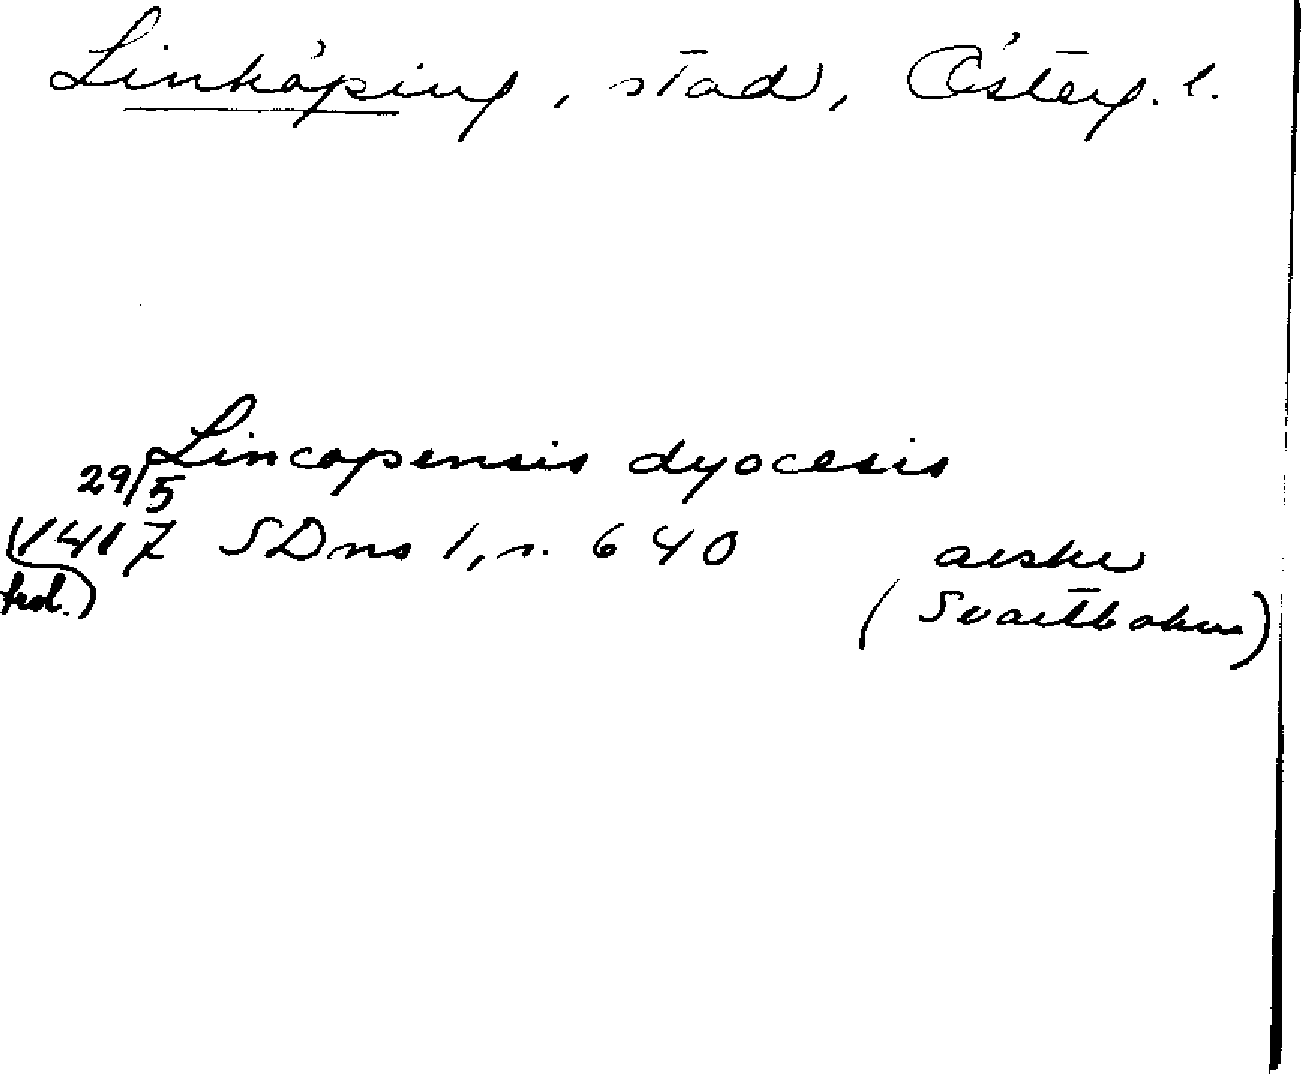 Linköping, stad, Österg. l.
Lincopensis dyocesis
29/5
1417 SDns 1, n. 640 avskr
(Svartboken)